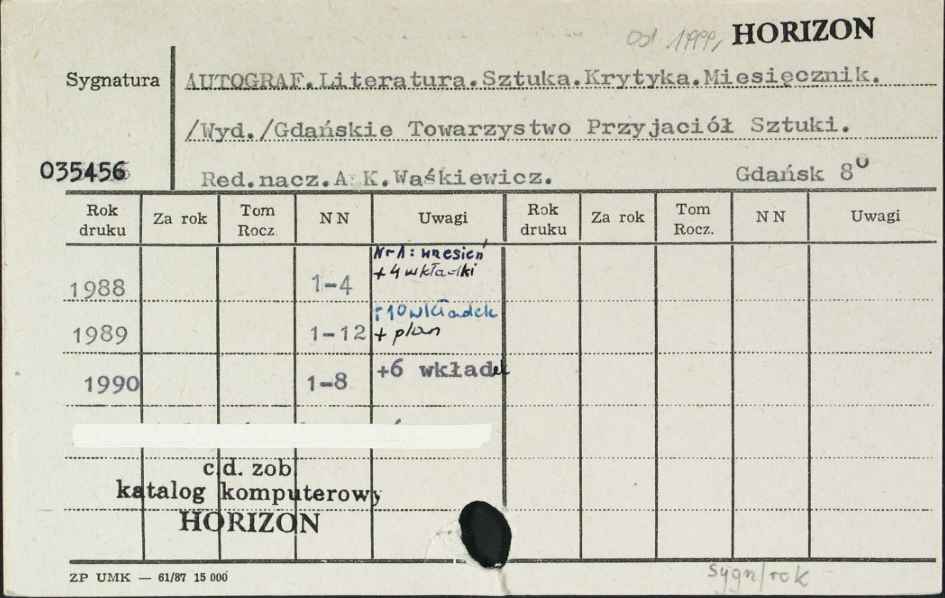 od 1999, HORIZON
Sygnatura AUTOGRAF.Literatura.Sztuka.Krytyka.Miesięcznik.
/Wyd./Gdańskie Towarzystwo Przyjaciół Sztuki.
035456 Red.nacz.A K.Waśkiewicz. Gdańsk 8º
Rok druku Za rok Tom Rocz. NN Uwagi Rok druku Za rok Tom Rocz. NN Uwagi
Nr 1: wrzesień
1988 1-4 + 4 wkładki
10 wkładek
1989 1-12 + plan
1990 1-8 +6 wkładek
c.d. zob.
katalog komputerowy
HORIZON
ZP UMK — 61/87 15 000
sygn/rok